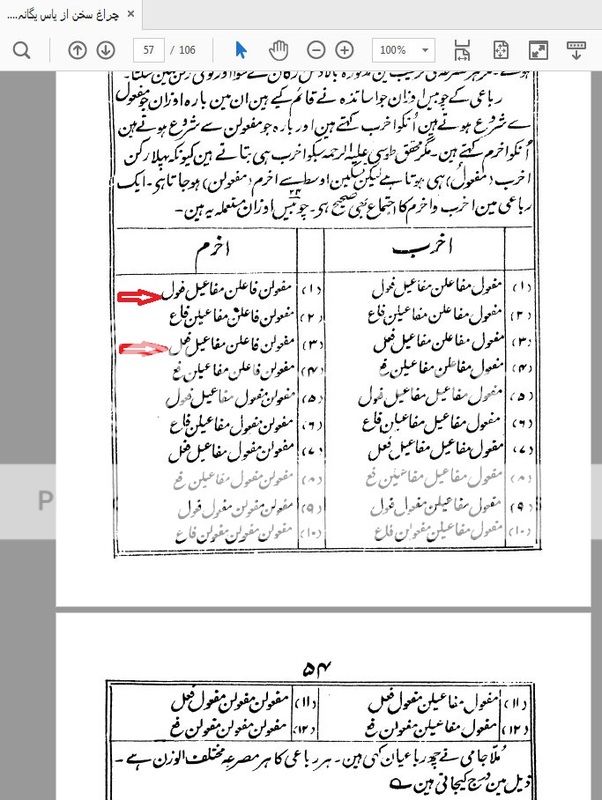 چراغ سخن از یاس یگانہ....
57 / 106
100%
رباعی کے چوبیس اوزان جو اساتذہ نے قائم کیے ہین ان مین بارہ اوزان جو مفعول
سے شروع ہوتے ہین اُنکو اخرب کہتے ہین اور بارہ جو مفعولن سے شروع ہوتے ہین
اُنکو اخرم کہتے ہین۔ مگر محقق طوسی علیہ الرحمہ سبکو اخرب ہی بتاتے ہین کیونکہ پہلا رکن
اخرب (مفعولُ) ہی ہوتا ہے لیکن تسکین اوسط سے اخرم (مفعولن) ہو جاتا ہے۔ ایک
رباعی مین اخرب و اخرم کا اجتماع بھی صحیح ہے۔ چوبیس ۲۴ اوزان مستعملہ یہ ہین۔
اخرب اخرم
(۱) مفعول مفاعلن مفاعیل فعول (۱) مفعولن فاعلن مفاعیل فعول
(۲) مفعول مفاعلن مفاعیلن فاع (۲) مفعولن فاعلن مفاعیلن فاع
(۳) مفعول مفاعلن مفاعیل فعل (۳) مفعولن فاعلن مفاعیل فعل
(۴) مفعول مفاعلن مفاعیلن فع (۴) مفعولن فاعلن مفاعیلن فع
(۵) مفعول مفاعیل مفاعیل فعول (۵) مفعولن مفعول مفاعیل فعول
(۶) مفعول مفاعیل مفاعیلن فاع (۶) مفعولن مفعول مفاعیلن فاع
(۷) مفعول مفاعیل مفاعیل فعل (۷) مفعولن مفعول مفاعیل فعل
(۸) مفعول مفاعیل مفاعیلن فع (۸) مفعولن مفعول مفاعیلن فع
(۹) مفعول مفاعیلن مفعول فعول (۹) مفعولن مفعولن مفعول فعول
(۱۰) مفعول مفاعیلن مفعولن فاع (۱۰) مفعولن مفعولن مفعولن فاع
۵۴
(۱۱) مفعول مفاعیلن مفعول فعل (۱۱) مفعولن مفعولن مفعول فعل
(۱۲) مفعول مفاعیلن مفعولن فع (۱۲) مفعولن مفعولن مفعولن فع
مُلّا جامی نے چھ رباعیان کہی ہین۔ ہر رباعی کا ہر مصرعہ مختلف الوزن ہے۔
ذیل مین درج کیجاتی ہین